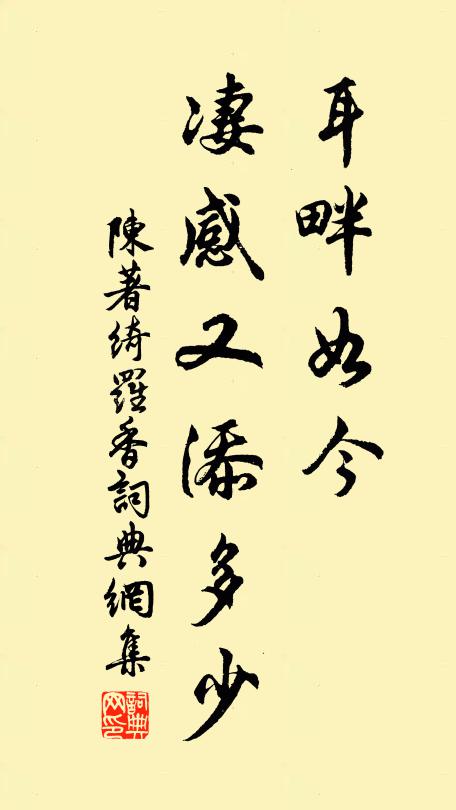 耳畔如今
凄感又添多少
陳著綺羅香詞典網集
詞典网印